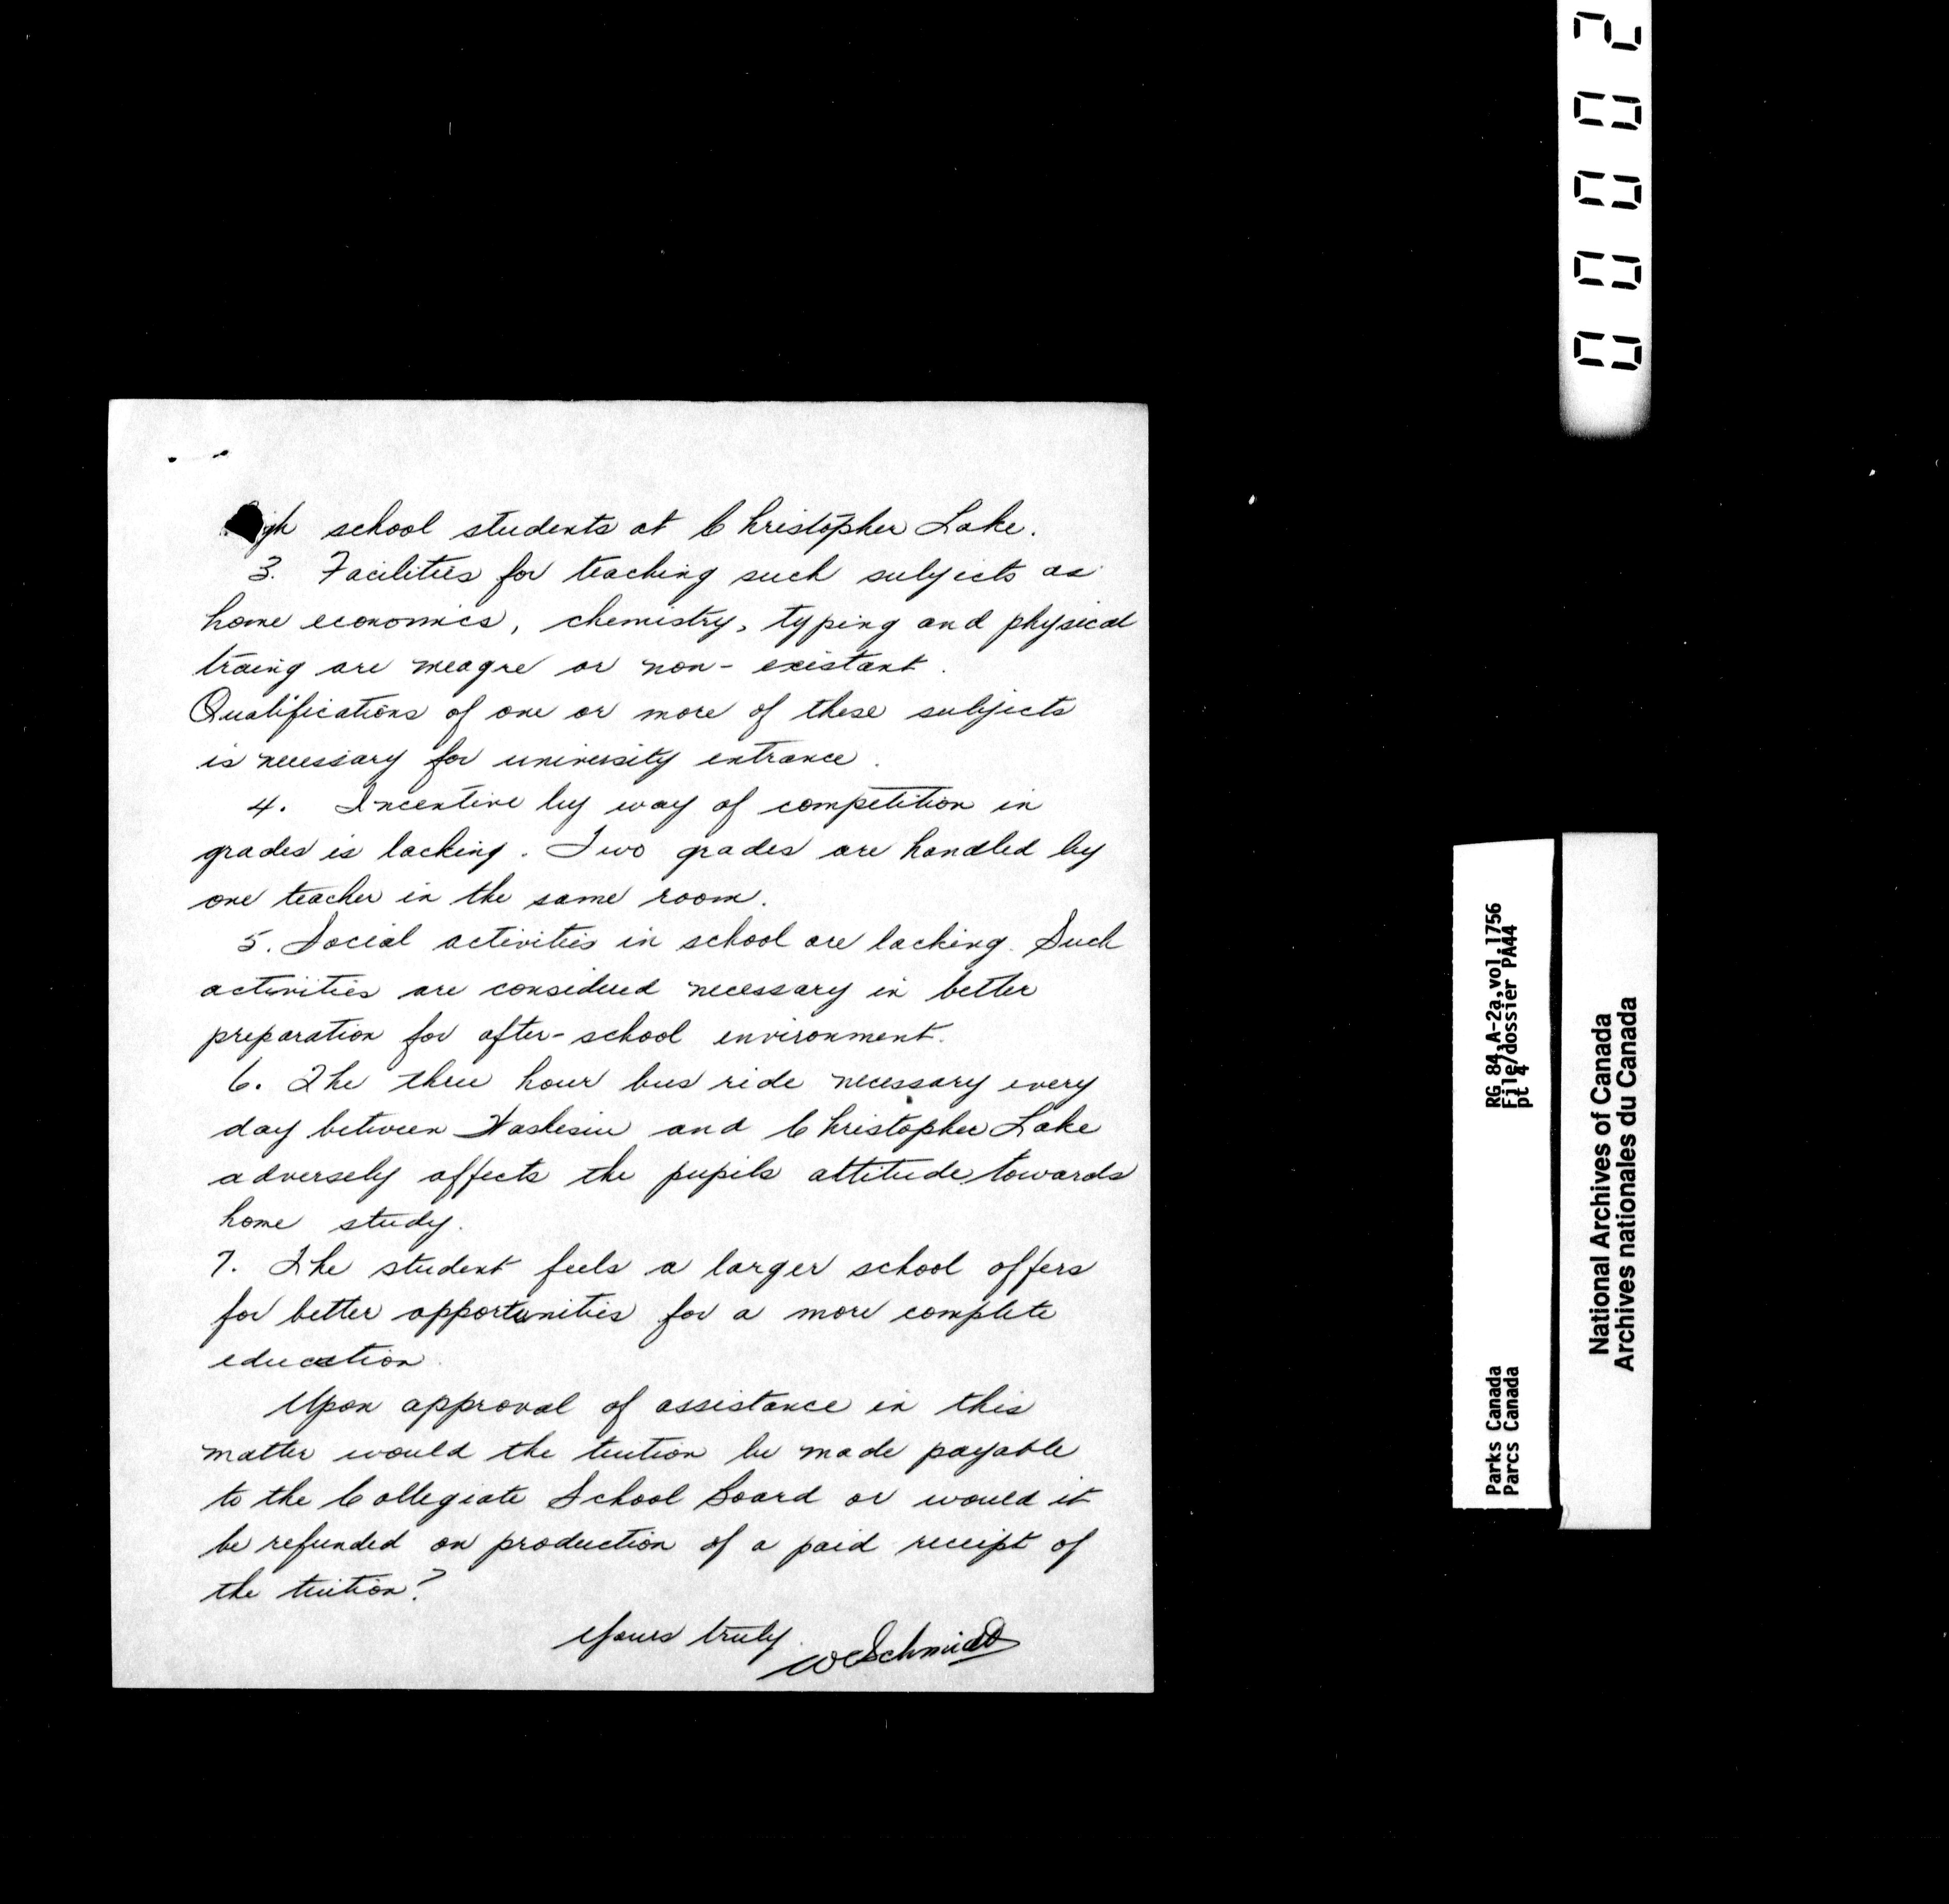 high school students at Christopher Lake.
3. Facilities for teaching such subjects as
home economics, chemistry, typing and physical
traing are meagre or non-existant.
Qualifications of one or more of these subjects
is necessary for university entrance.
4. Incentive by way of competition in
grades is lacking. Two grades are handled by
one teacher in the same room.
5. Social activities in school are lacking. Such
activities are considered necessary in better
preparation for after-school environment.
6. The three hour bus ride necessary every
day between Waskesiu and Christopher Lake
adversely affects the pupils attitude towards
home study.
7. The student feels a larger school offers
far better opportunities for a more complete
education.
Upon approval of assistance in this
matter would the tuition be made payable
to the Collegiate School Board or would it
be refunded on production of a paid receipt of
the tuition?
Yours truly.
W Schmidt
00002
RG 84,A-2a,vol.1756
File/dossier PA44
pt 4
Parks Canada
Parcs Canada
National Archives of Canada
Archives nationales du Canada